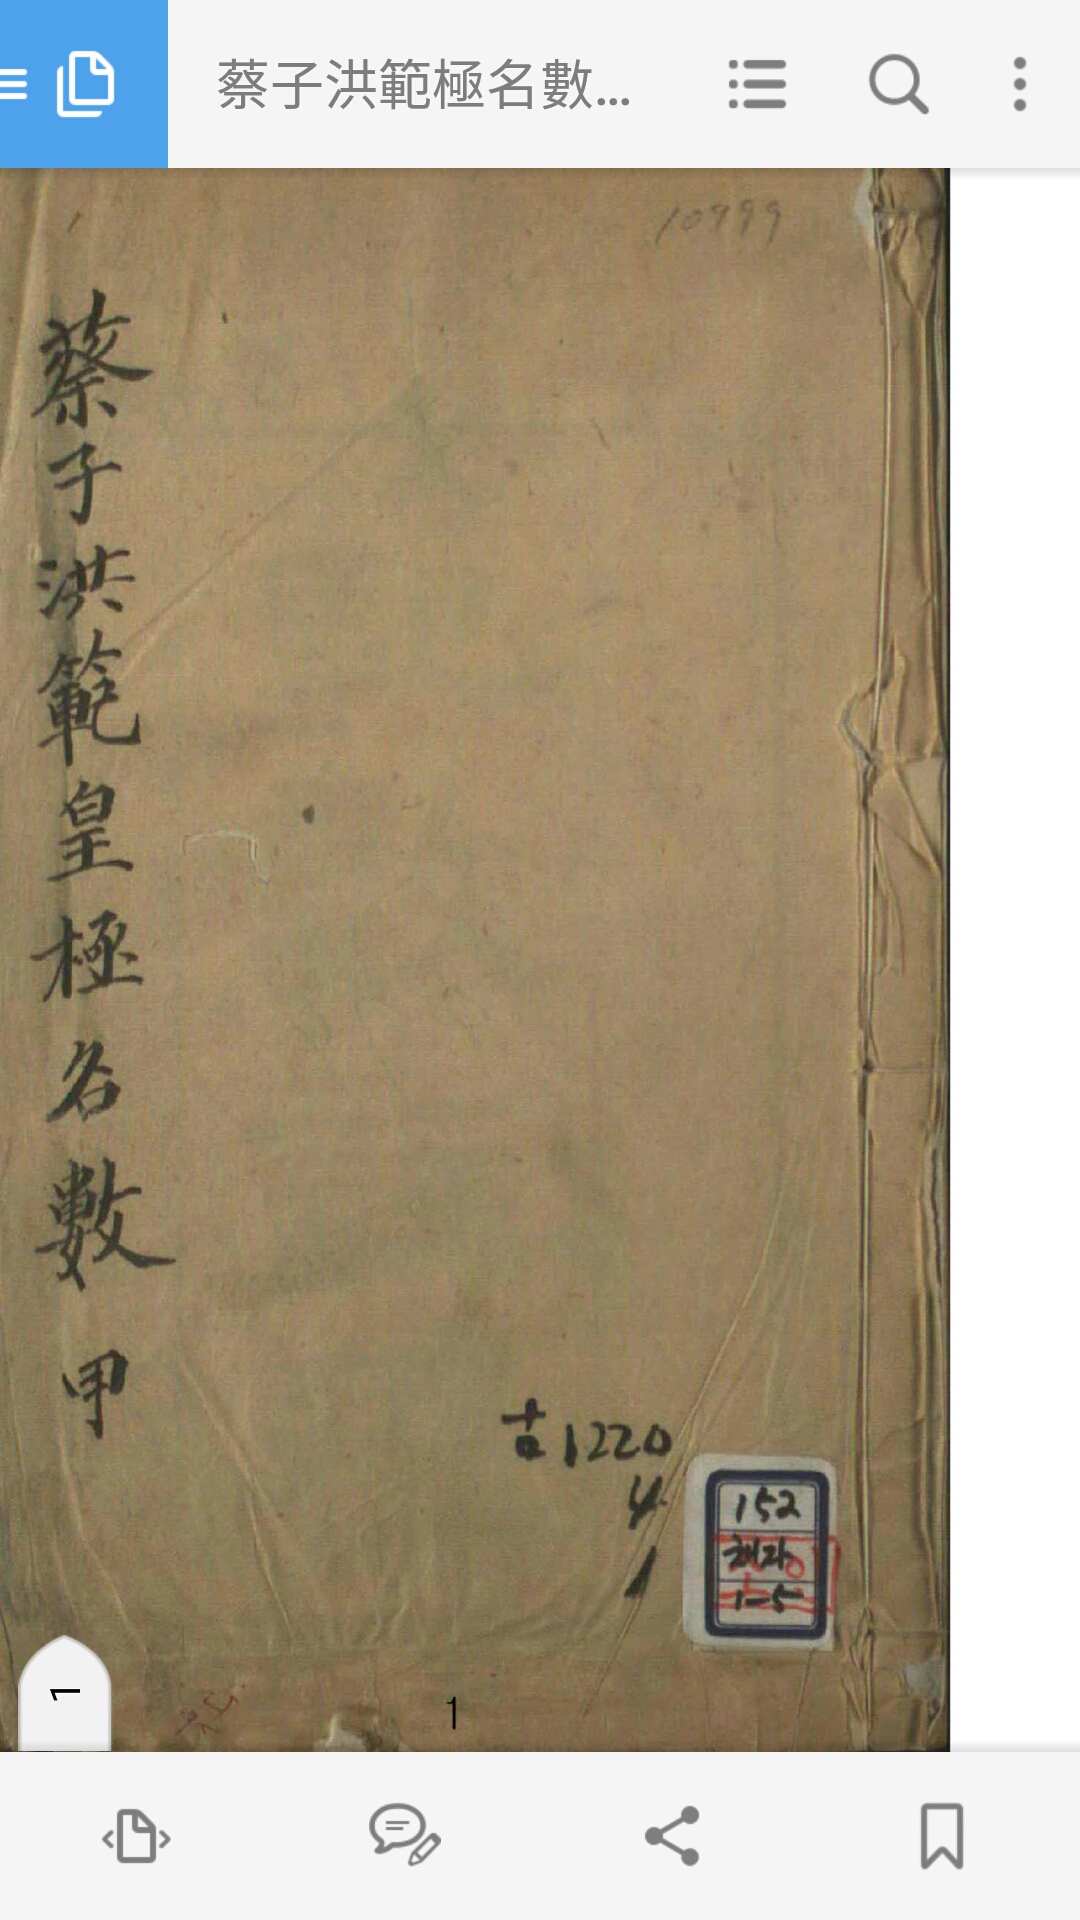 蔡子洪範極名數...
10999
蔡子洪範皇極名數 甲
古1220
4
1
152
채라
1-5
1
1